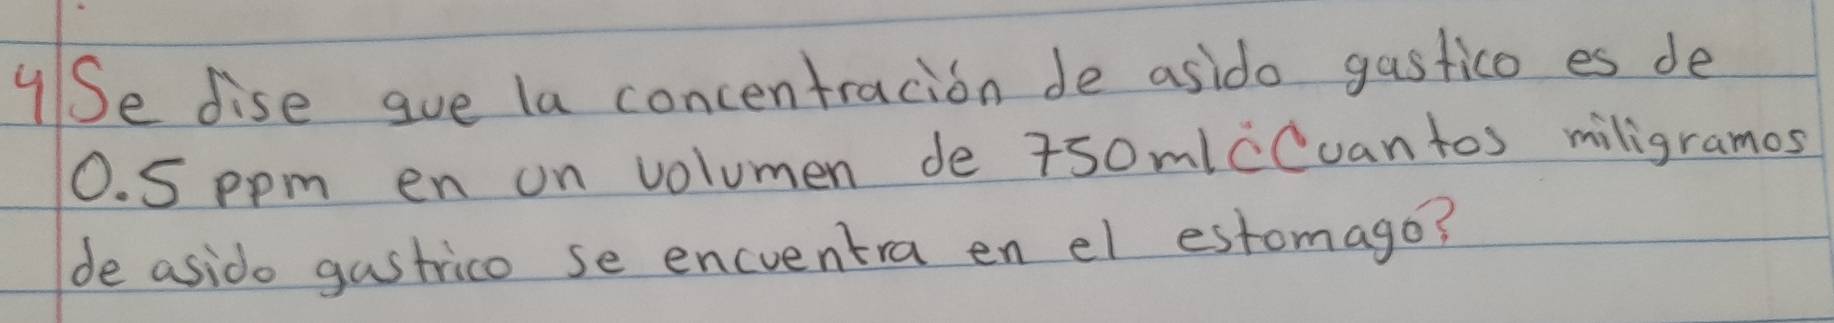 4 Se dise que la concentración de asido gastico es de
0.5 ppm en un volumen de 750ml ¿Cuantos miligramos
de asido gastrico se encuentra en el estomago?